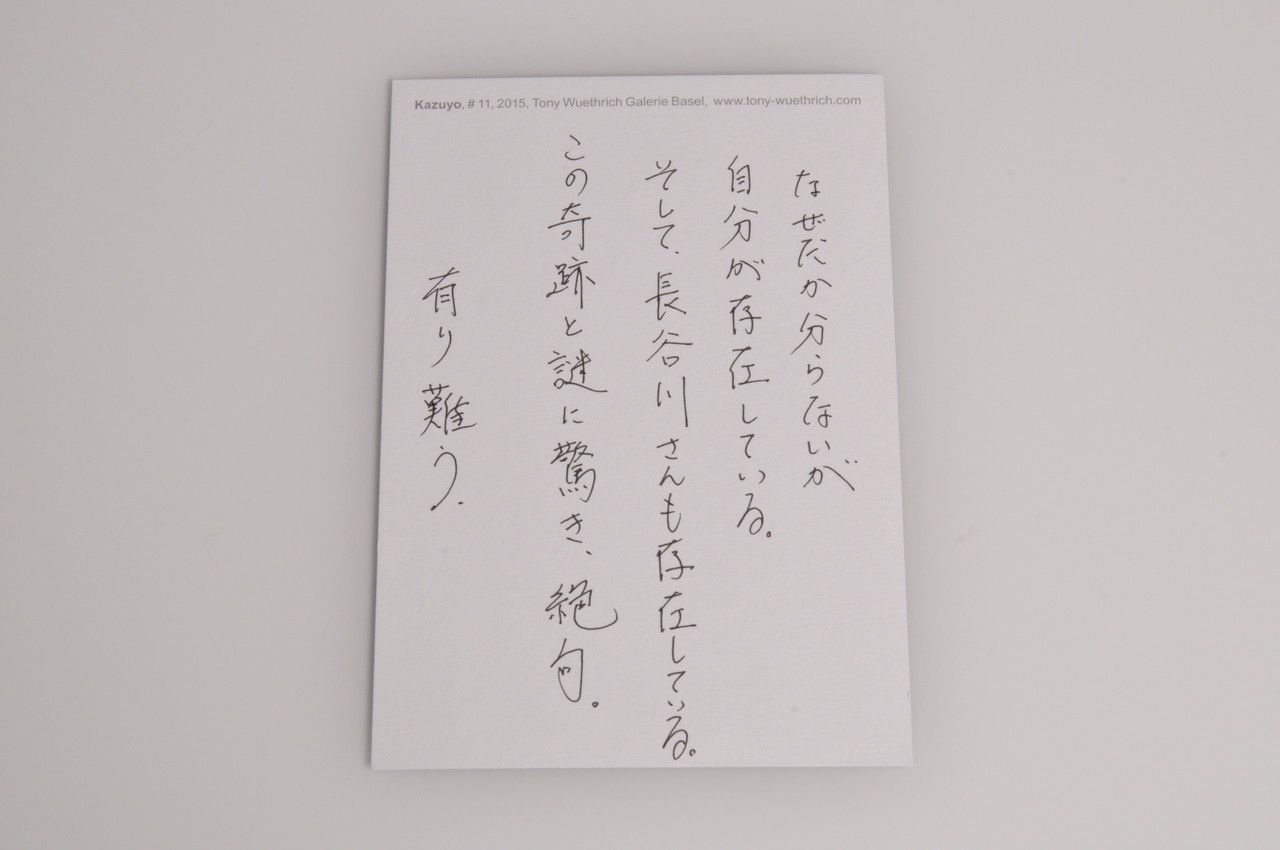 Kazuyo, # 11, 2015, Tony Wuethrich Galerie Basel, www.tony-wuethrich.com
なぜだか分らないが
自分が存在している。
そして、長谷川さんも存在している。
この奇跡と謎に驚き、絶句。
有り難う.